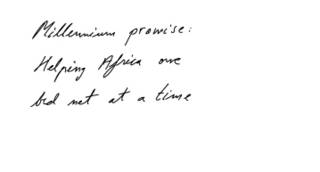 Millennium promise:
Helping Africa one
bed net at a time